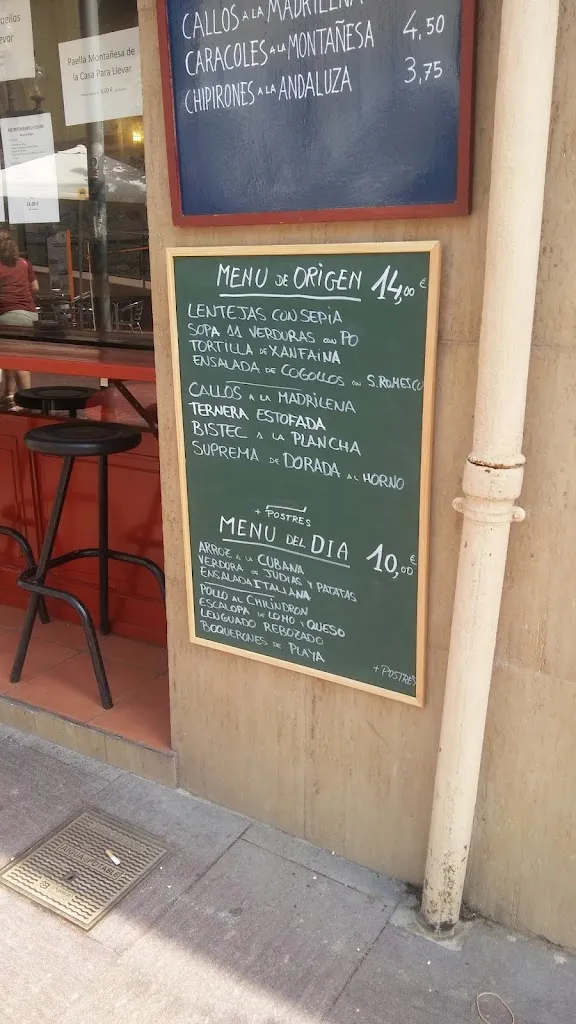 Paella Montañesa de
la Casa Para Llevar
CALLOS A LA MADRILEÑA
CARACOLES A LA MONTAÑESA 4,50
CHIPIRONES A LA ANDALUZA 3,75
MENU DE ORIGEN 14,00 €
LENTEJAS CON SEPIA
SOPA VERDURAS CON PO
TORTILLA DE XANFAINA
ENSALADA DE COGOLLOS CON S.ROMESCO
CALLOS A LA MADRILENA
TERNERA ESTOFADA
BISTEC A LA PLANCHA
SUPREMA DE DORADA AL HORNO
+ POSTRES
MENU DEL DIA 10,00 €
ARROZ A LA CUBANA
VERDURA DE JUDIAS Y PATATAS
ENSALADA ITALIANA
POLLO AL CHILINDRON
ESCALOPA DE LOMO Y QUESO
LENGUADO REBOZADO
BOQUERONES DE PLAYA
+ POSTRES
AIGUA POTABLE